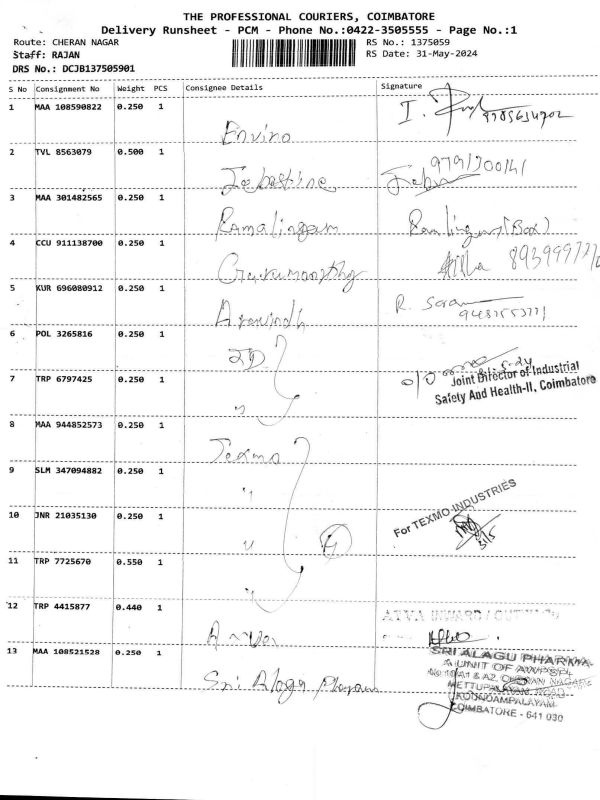 THE PROFESSIONAL COURIERS, COIMBATORE
Delivery Runsheet - PCM - Phone No.:0422-3505555 - Page No.:1
Route: CHERAN NAGAR RS No.: 1375059
Staff: RAJAN RS Date: 31-May-2024
DRS No.: DCJB137505901
S No Consignment No Weight PCS Consignee Details Signature
1 MAA 108590822 0.250 1
Enviro
2 TVL 8563079 0.500 1
Jebastine
3 MAA 301482565 0.250 1
Ramalingam
4 CCU 911138700 0.250 1
5 KUR 696080912 0.250 1
R.
Aravindh
6 POL 3265816 0.250 1
JD
7 TRP 6797425 0.250 1
Joint Director of Industrial
Safety And Health-II, Coimbatore
8 MAA 944852573 0.250 1
Texmo
9 SLM 347094882 0.250 1
10 JNR 21035130 0.250 1
For TEXMO INDUSTRIES
11 TRP 7725670 0.550 1
12 TRP 4415877 0.440 1
13 MAA 108521528 0.250 1
Sri Alaga Pharam
SRI ALAGU PHARMA
A UNIT OF AWPSPL
METTUPALAYAM ROAD
KOUNDAMPALAYAM
COIMBATORE - 641 030